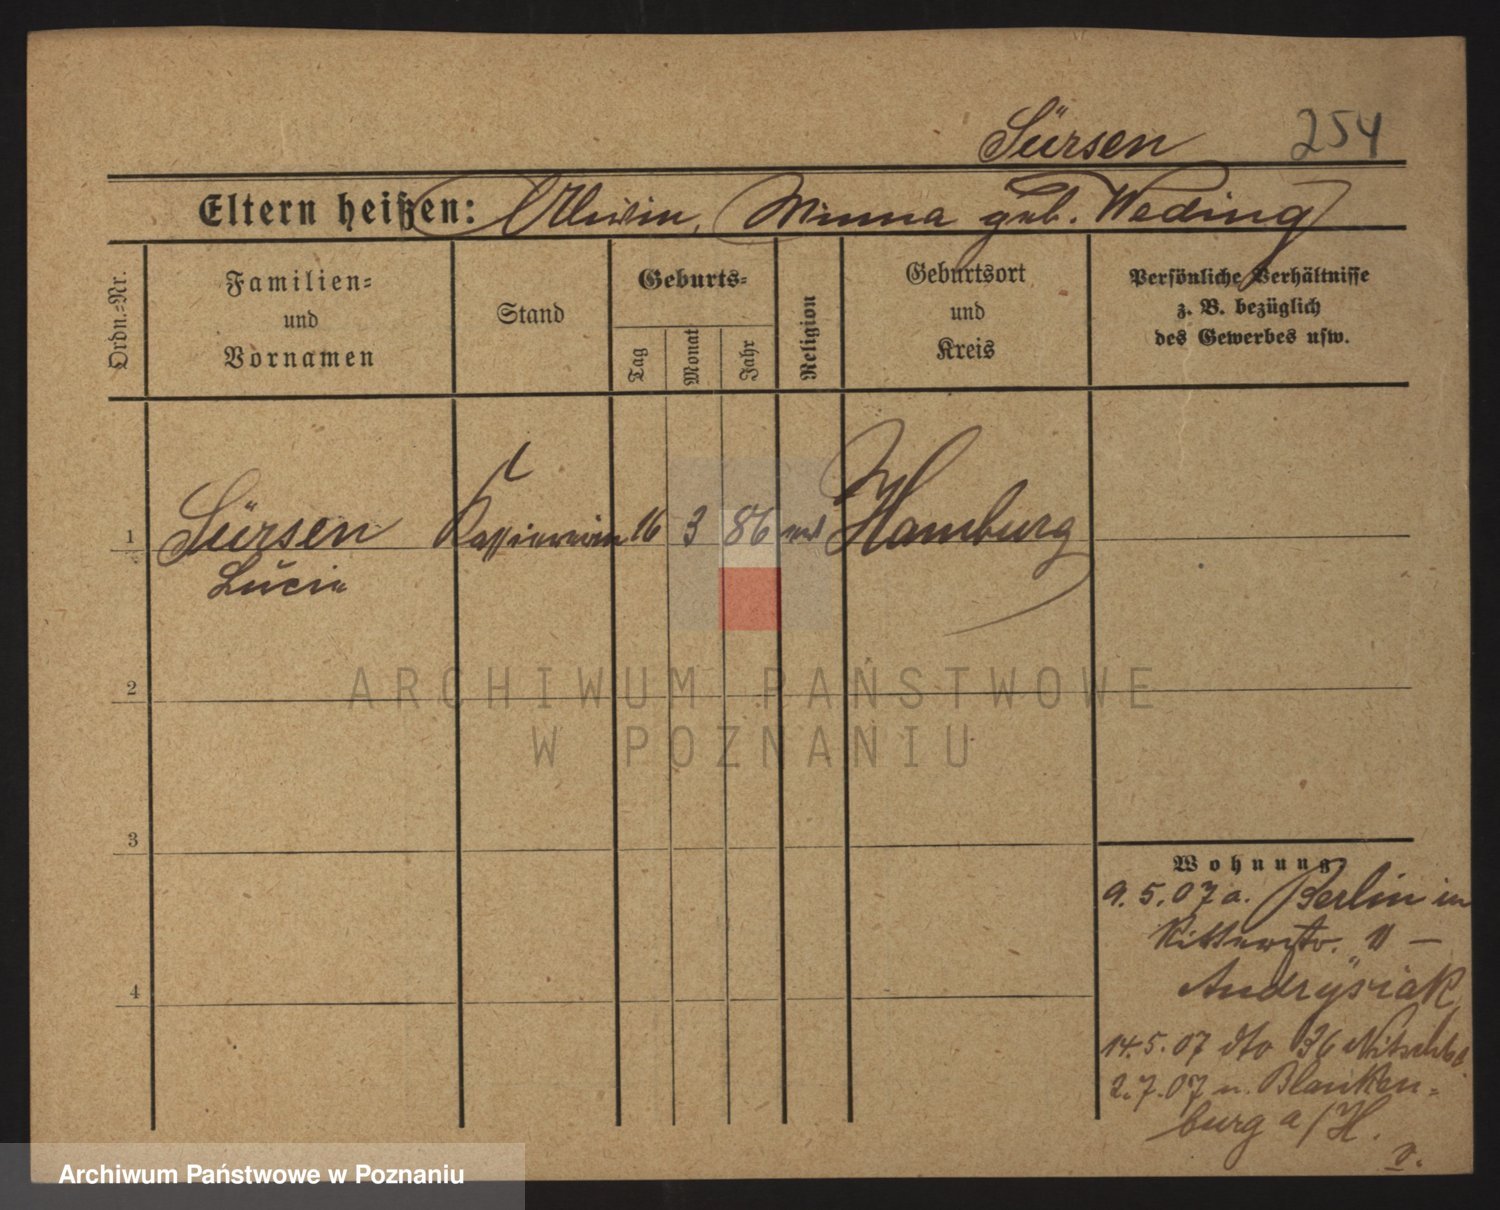 Sürsen 254
Eltern heißen: Minna geb. Weding
Ordn.-Nr.
Familien-
und
Vornamen
Stand
Geburts-
Tag
Monat
Jahr
Religion
Geburtsort
und
Kreis
Persönliche Verhältnisse
z. B. bezüglich
des Gewerbes usw.
1 Sürsen Kassiererin 16 3 86 Hamburg
Lucie
2
ARCHIWUM PAŃSTWOWE
W POZNANIU
3
Wohnung.
9.5.07 a. Berlin in
Ritterstr. 11 –
Andrysiak
4
14.5.07 dto 36
2.7.07 n. Blanken-
burg a/H.
Archiwum Państwowe w Poznaniu